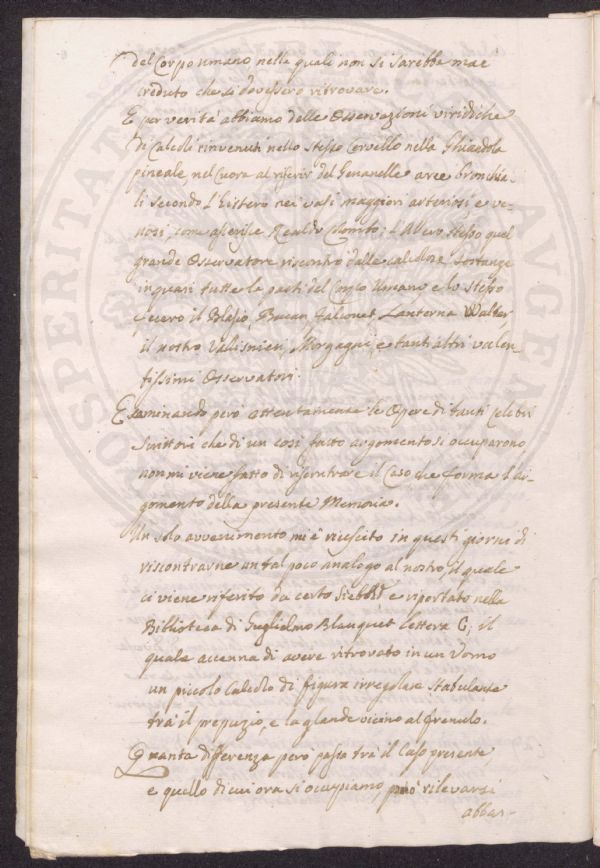 del Corpo umano nelle quali non si sarebbe mai
creduto che si dovessero ritrovare.
E per verità abbiamo delle Osservazioni veridiche
di Calcoli rinvenuti nello stesso Cervello nella Ghiandola
pineale nel Cuore al riferir del aree bronchia-
li secondo l' nei vasi maggiori arteriosi e ve-
nosi, come asserisce Realdo Colombo; l'Allero stesso quel
grande Osservatore riscontrò dalle calcolose sostanze
in quasi tutte le parti del Corpo Umano e lo stesso
fecero il Blasio, Falconet, Lanterna Walter,
il nostro Valisnieri, Morgagni, e tanti altri valen-
tissimi Osservatori.
Esaminando però attentamente le Opere di tanti Celebri
Scrittori che di un così fatto argomento si occuparono
non mi viene fatto di riscontrare il Caso che forma l'ar-
gomento della presente Memoria.
Un solo avvenimento mi è riuscito in questi giorni di
riscontrarne un tal poco analogo al nostro, il quale
ci viene riferito da certo e riportato nella
Biblioteca di Guglielmo Blauquet lettera C, il
quale accenna di avere ritrovato in un Uomo
un piccolo Calcolo di figura irregolare stabulante
tra il prepuzio, e la glande vicino al frenulo.
Quanta differenza però passa tra il Caso presente
e quello di cui ora si occupiamo, può rilevarsi
abbas-
HOSPERITATI AUGEN